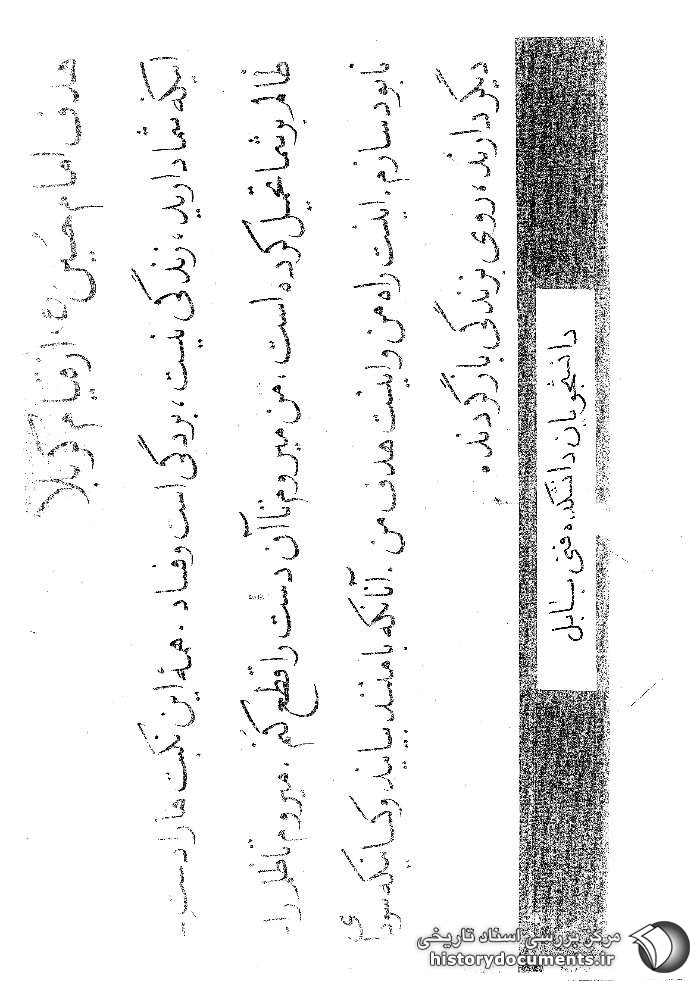 هدف امام حسین (ع) از قیام کربلا
اینکه شما دارید، زندگی نیست، بردگی است و فساد. همهٔ این نکبت ها را دست
ظالم بر شما تحمیل کرده است. من میروم تا آن دست را قطع کنم. میروم تا ظلم را
نابود سازم. اینست راه من و اینست هدف من. آنانکه با منند بیایند و کسانیکه سودای
دیگر دارند، روی بزندگی بازگردند.
دانشجویان دانشکده فنی بابل
مرکز بررسی اسناد تاریخی
historydocuments.ir